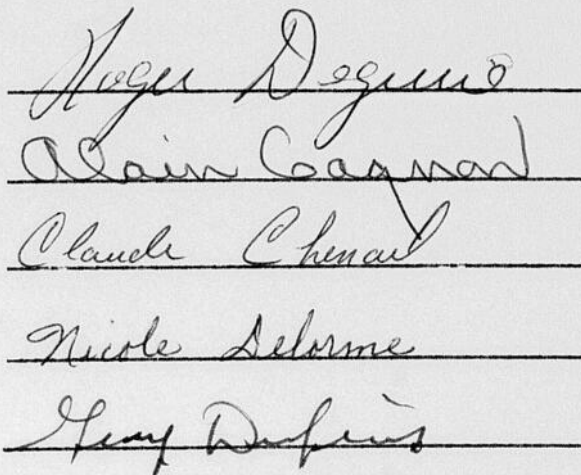 Roger Deguire
Alain Gagnon
Claude Chenail
Nicole Delorme
Dupuis